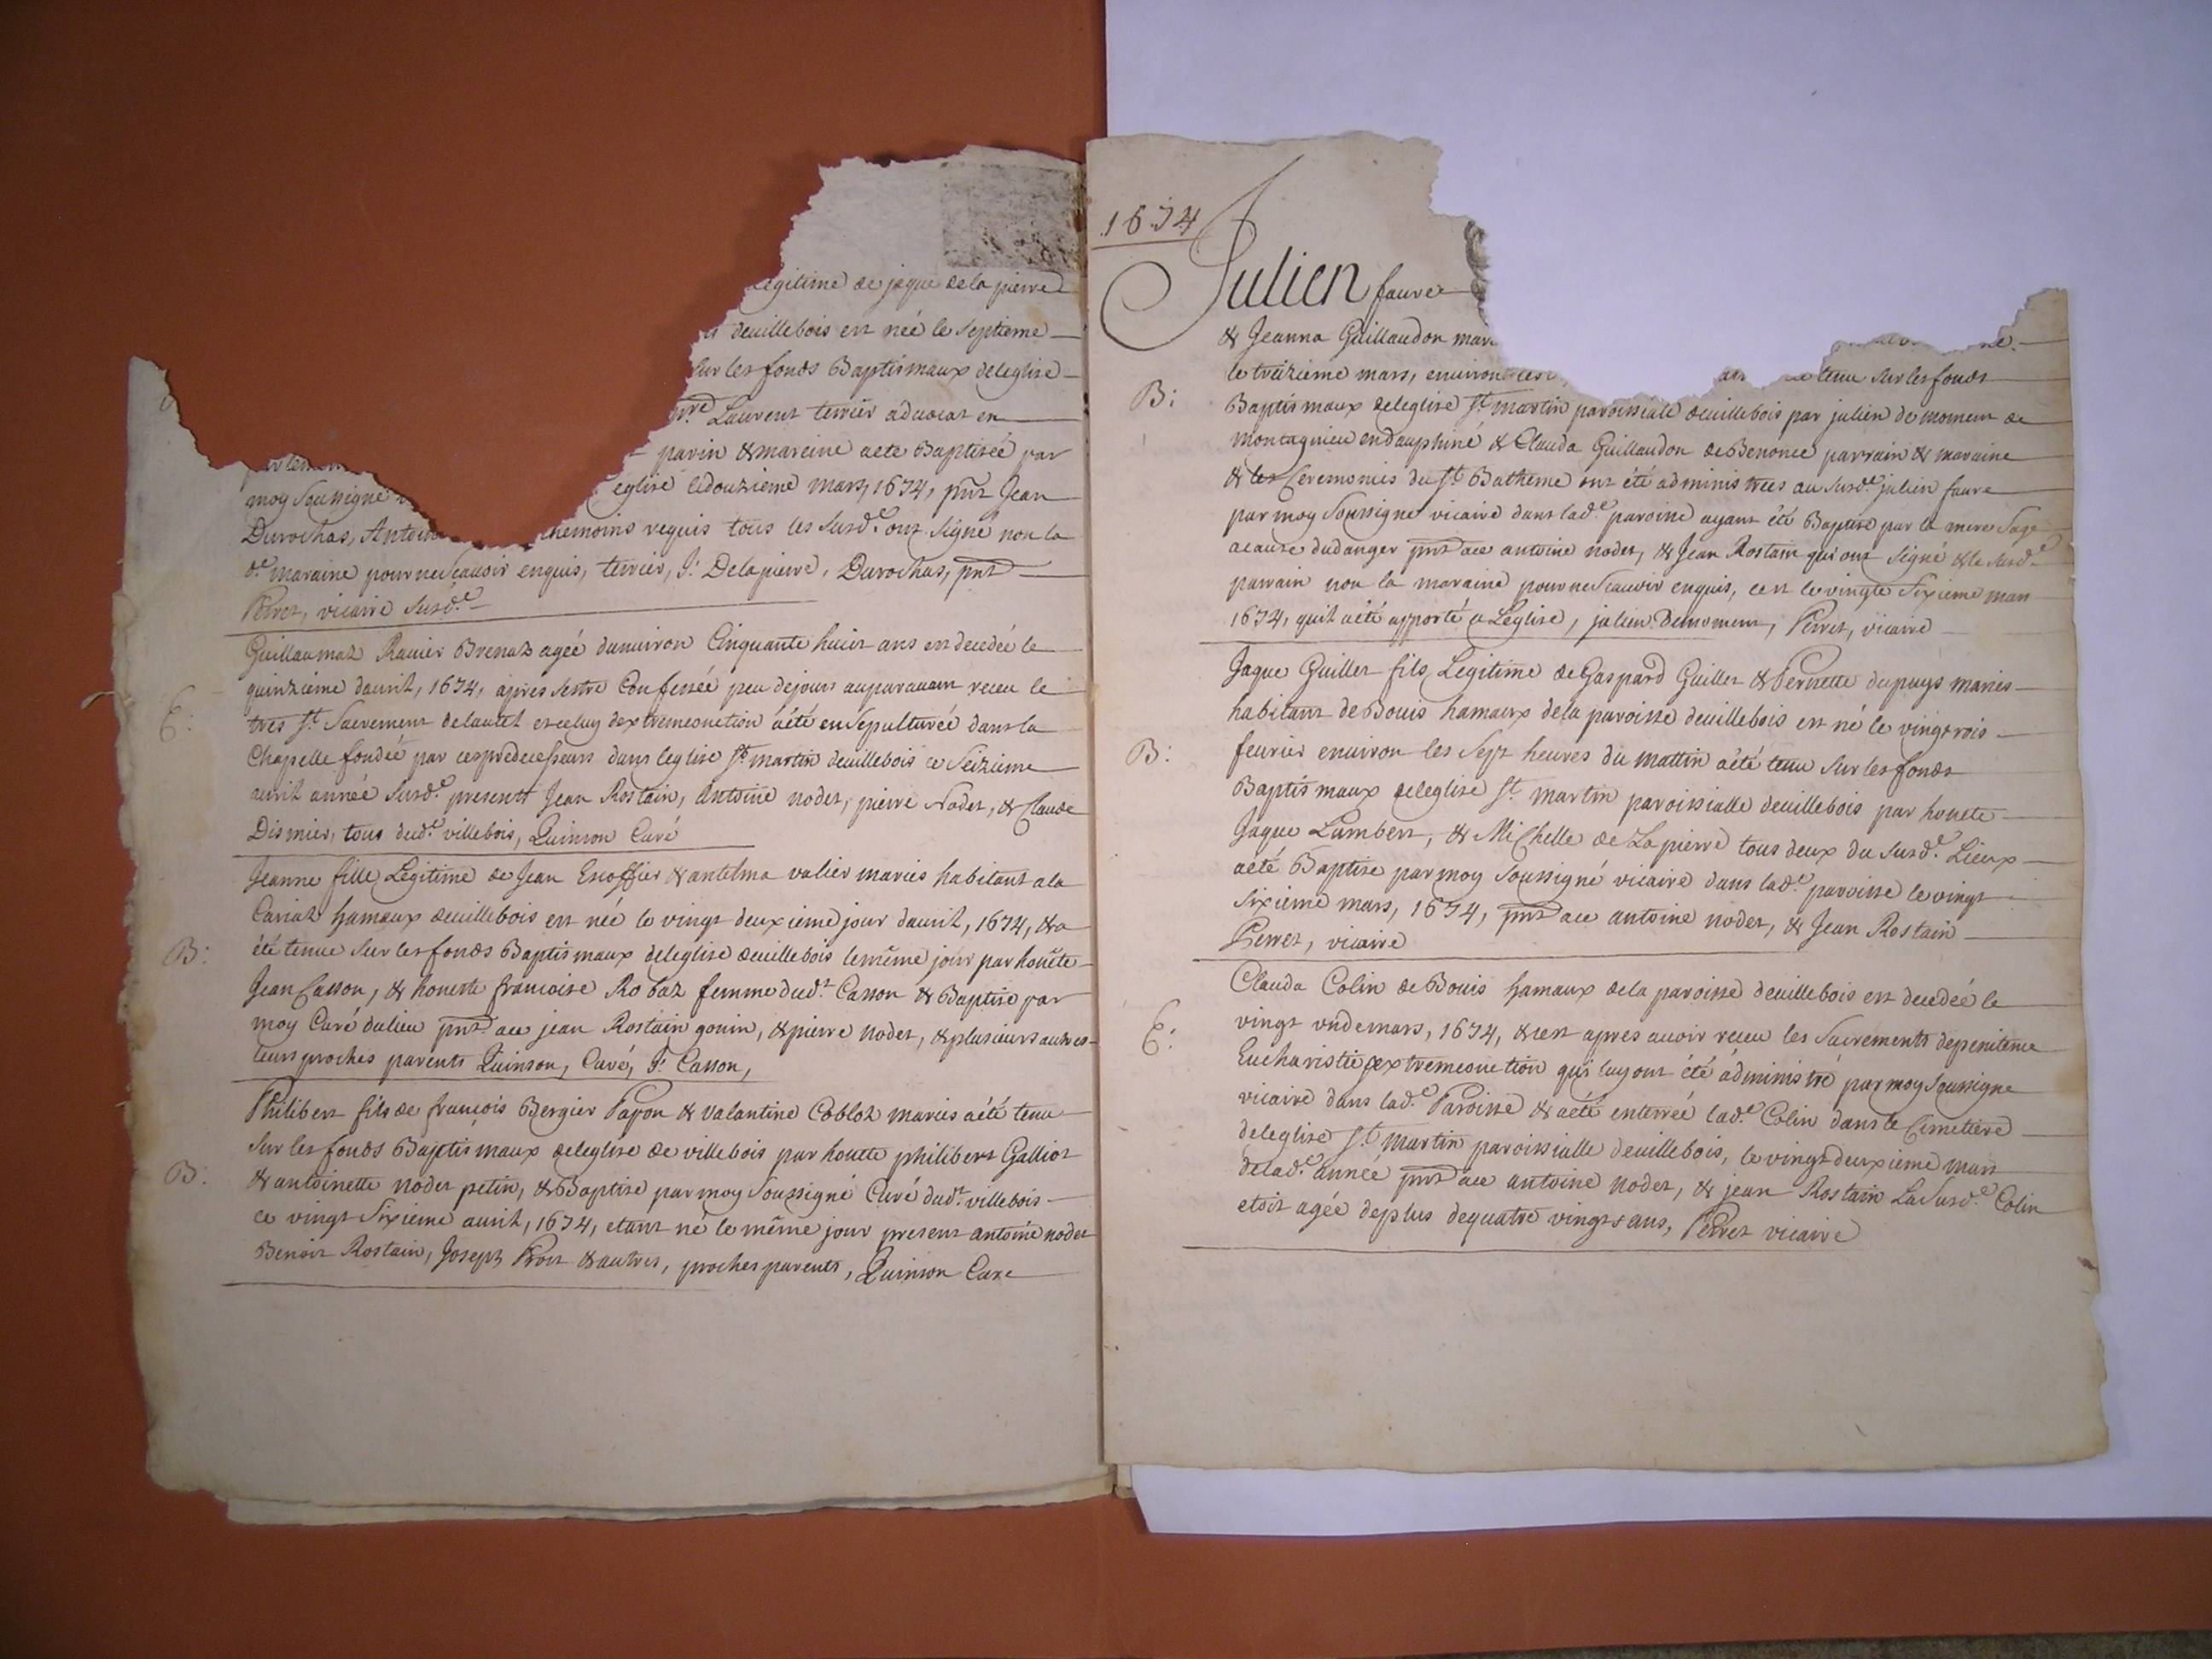 legitime de jaque de la pierre
deuillebois est née le septieme
sur les fonds Baptismaux deleglise
Laurent terrier aduocat en
parin & mareine aete Baptisée par
moy soussigné eglise ledouzieme mars, 1674, pnt Jean
Durochas, Antoin themoins requis tous les susd.e ont signé non la
d.e maraine pour ne scauoir enquis, terrier, J: Delapierre, Durochas, pnt
Perret, vicaire susd.e
Guillaumaz Rauier Brenaz agée denuiron Cinquante huict ans est decedée le
E:
quinzieme dauril, 1674, aprés sestre Confessée peu dejours auparauant receu le
tres St. Sacrement delautel et celuy dextremeonction aété ensepulturée dans la
Chapelle fondée par ces predecesseurs dans leglise St. martin deuillebois ce Seizieme
auril année susd.e presents Jean Rostain, Antoine nodet, pierre Nodet, & Claude
Dismier, tous dud.t villebois, Quinson Curé
Jeanne fille Legitime de Jean Escoffier & antelma valier mariés habitant ala
Cariaz hamaux deuillebois est née le vingt deuxieme jour dauril, 1674, & a
B:
été tenue sur les fonds Baptismaux deleglise deuillebois le même jour par honête
Jean Casson, & honeste francoise Robaz femme dud.t Casson & Baptise par
moy Curé dulieu pnt ace jean Rostain gonin, & pierre nodet, & plusieurs autres
leurs proches parents Quinson, Curé, J: Casson,
Philibert fils de françois Bergier Papon & valantine Cobloz mariés aété tenu
sur les fonds Baptismaux deleglise de villebois par honette philibert Galliot
B:
& antoinette nodet petin, & Baptise par moy soussigné Curé dud.t villebois
ce vingt sixieme auril, 1674, etant né le même jour present antoine nodet
Benoit Rostain, Joseph Prost & autres, proches parents, Quinson Cure
1674
Julien faure
& Jeanna Guillaudon mari
le treizieme mars, enuiron tenu sur les fonds
B:
Baptismaux deleglise St. martin paroissiale deuillebois par julien de moment de
montagnieu endauphiné & Clauda Guillaudon de Benonce parrain & maraine
& les Ceremonies du St. Batheme ont été administrées au susd.e julien faure
par moy soussigné vicaire dans lad.e paroisse ayant été Baptisé par la mere sage
acause dudanger pnt ace antoine nodet, & Jean Rostain qui ont signé & le susd.e
parrain non la maraine pour ne scauoir enquis, cest le vingte sixieme mars
1674, quil aété apporté a Leglise, julien demoment, Perret, vicaire
Jaque Guillet fils Legitime de Gaspard Guillet & Pernette dupuys mariés
habitant de Bouis hamaux dela paroisse deuillebois est né le vingtrois
B:
feurier enuiron les sept heures du mattin aété tenu sur les fonds
Baptismaux deleglise St. martin paroissialle deuillebois par honete
Jaque Lambert, & Michelle de Lapierre tous deux du susd.e Lieux
aété Baptise par moy soussigné vicaire dans lad.e paroisse le vingt
sixieme mars, 1674, pnt ace antoine nodet, & Jean Rostain
Perret, vicaire
Clauda Colin de Bouis hamaux dela paroisse deuillebois est decedée le
E:
vingt vn de mars, 1674, & cest apres auoir receu les Sacrements depenitence
Eucharistie & extremeonction qui luy ont été administré par moy soussigne
vicaire dans lad.e Paroisse & aété enterrée lad.e Colin dans le Cimetiere
deleglise St. martin paroissialle deuillebois, le vingt deuxieme mars
delad.e année pnt ace antoine nodet, & jean Rostain La susd.e Colin
etoit agée deplus dequatre vingts ans, Perret vicaire